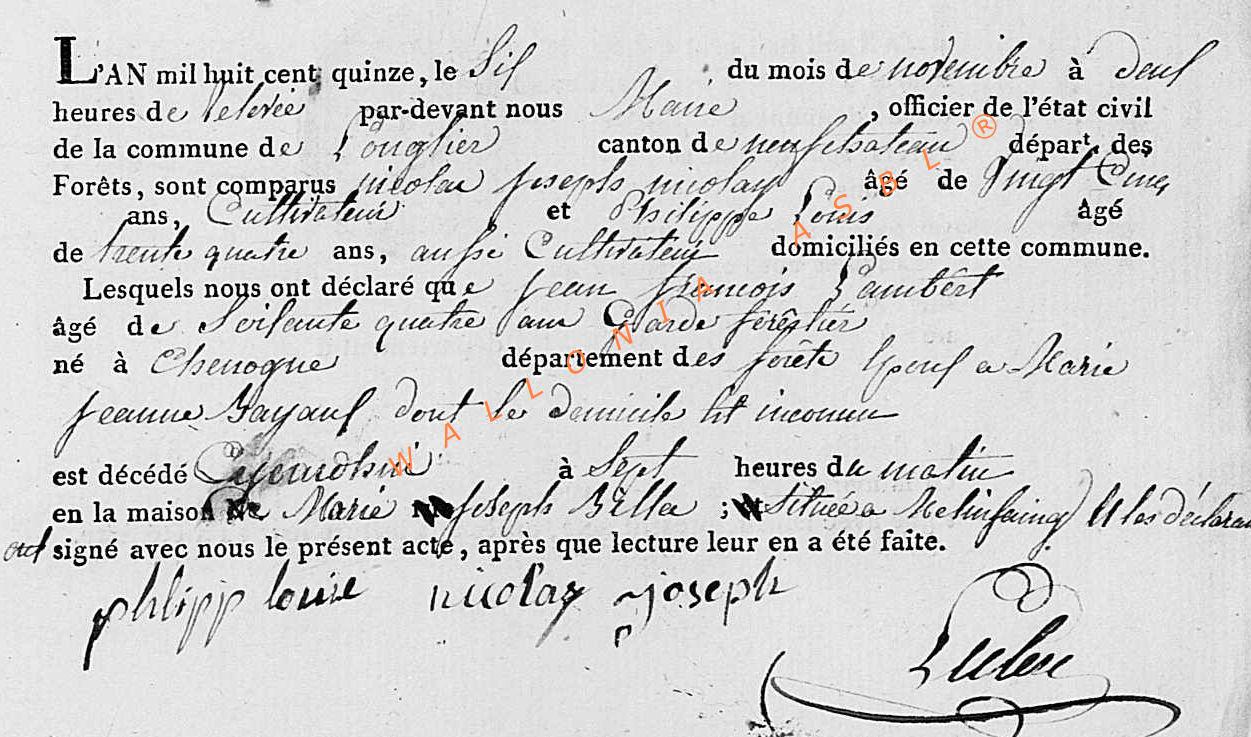 L'AN mil huit cent quinze, le Six du mois de novembre à deux
heures de relevée par-devant nous Maire, officier de l'état civil
de la commune de Longlier canton de neufchateau départ. des
Forêts, sont comparus nicolas Joseph nicolay âgé de vingt Cinq
ans, Cultivateur et Philippe Louis âgé
de trente quatre ans, aussi Cultivateur domiciliés en cette commune.
Lesquels nous ont déclaré que jean francois Lambert
âgé de Soixante quatre ans Garde forêstier
né à Chenogne département des forêts Epoux a Marie
jeanne dont le domicile Est inconnu
est décédé à Sept heures du matin
en la maison de Marie joseph Billa ; située a Melinfaing Et les déclarans
ont signé avec nous le présent acte, après que lecture leur en a été faite.
philipp louis nicolay joseph
WALLONIA ASBL ®